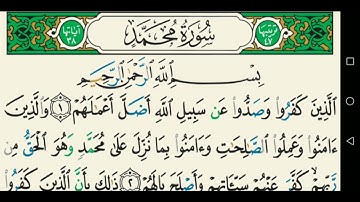 ترتيبها ٤٧ سُورَةُ مُحَمَّدٍ آياتها ٣٨
بِسْمِ اللَّهِ الرَّحْمَٰنِ الرَّحِيمِ
الَّذِينَ كَفَرُوا وَصَدُّوا عَن سَبِيلِ اللَّهِ أَضَلَّ أَعْمَالَهُمْ ١ وَالَّذِينَ
ءَامَنُوا وَعَمِلُوا الصَّالِحَاتِ وَءَامَنُوا بِمَا نُزِّلَ عَلَىٰ مُحَمَّدٍ وَهُوَ الْحَقُّ مِن
رَّبِّهِمْ كَفَّرَ عَنْهُمْ سَيِّئَاتِهِمْ وَأَصْلَحَ بَالَهُمْ ٢ ذَٰلِكَ بِأَنَّ الَّذِينَ كَفَرُوا